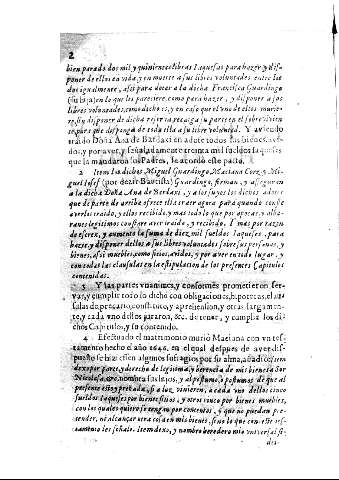 2
bien parado dos mil y quinientos libras Laquesas para hazer, y disponer
de ellos en vida, y en muerte a sus libres voluntades entre los
dos igualmente, assi para dotar a la dicha Francisca Guardingo
(su hija) en lo que les pareciere, como para hazer, y disponer a sus
libres voluntades, como dicho es, y en caso que el uno de ellos muriere,
sin disponer de dicha reserva recaiga su parte en el sobreviviente,
para que disponga de toda ella a su libre voluntad. Y aviendo
traido Doña Ana de Bardaxi en adote todos sus bienes avidos,
y por aver, y señaladamente treinta mil sueldos laqueses
que la mandaron sus Padres, se acordò este pacto.
2 Item los dichos Miguel Guardingo, Mariana Corez, y Miguel
Iosef (por dezir Bautista) Guardingo, firman, y asseguran
a la dicha Doña Ana de Bardaxi, y a los suyos los dichos adotes
que de parte de arriba ofrece ella traer agora para quando conste
averlos traido, y ellos recibido, y mas todo lo que por apocas, y albaranes
legitimos constare aver traido, y recibido. Y mas por razon
de escrex, y aumento la suma de diez mil sueldos laqueses, para
hazer, y disponer dellos a sus libres voluntades sobre sus personas, y
bienes, assi muebles, como sitios, avidos, y por aver en todo lugar, y
con todas las clausulas en la estipulacion de los presentes Capitulos
contenidas.
3 Y las partes vnanimes, y conformes prometieron servar,
y cumplir todo lo dicho con obligaciones, hypotecas, clausulas
de precario, constituto, y aprehension, y otras largamente,
y cada vno dellos juraron, &c. de tener, y cumplir los dichos
Capitulos, y su contenido.
4 Efectuado el matrimonio muriò Mariana con vn testamento
hecho el año 1646. en el qual despues de aver dispuesto
se hiziessen algunos sufragios por su alma, añadiò: Item
dexo por parte, y derecho de legitima, y herencia de mis bienes a Sor
Nicolasa, &c. nombra sus hijos, y al postumo, o postumos de que al
presente estoy preñada, si a luz vinieren, a cada uno dellos cinco
sueldos laqueses por bienes sitios, y otros cinco por bienes muebles,
con los quales quiero se tengan por contentos, y que no puedan pretender,
ni alcançar otra cosa en mis bienes, sino lo que con este testamento
les señalo. Item dexo, y nombro heredero mio universal si-
des-